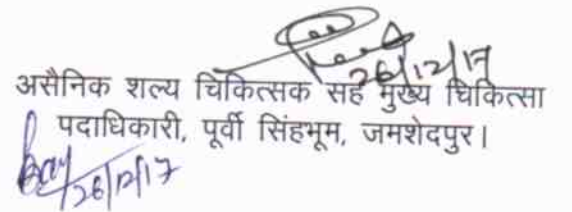 26/12/17
असैनिक शल्य चिकित्सक सह मुख्य चिकित्सा
पदाधिकारी, पूर्वी सिंहभूम, जमशेदपुर।
26/12/17